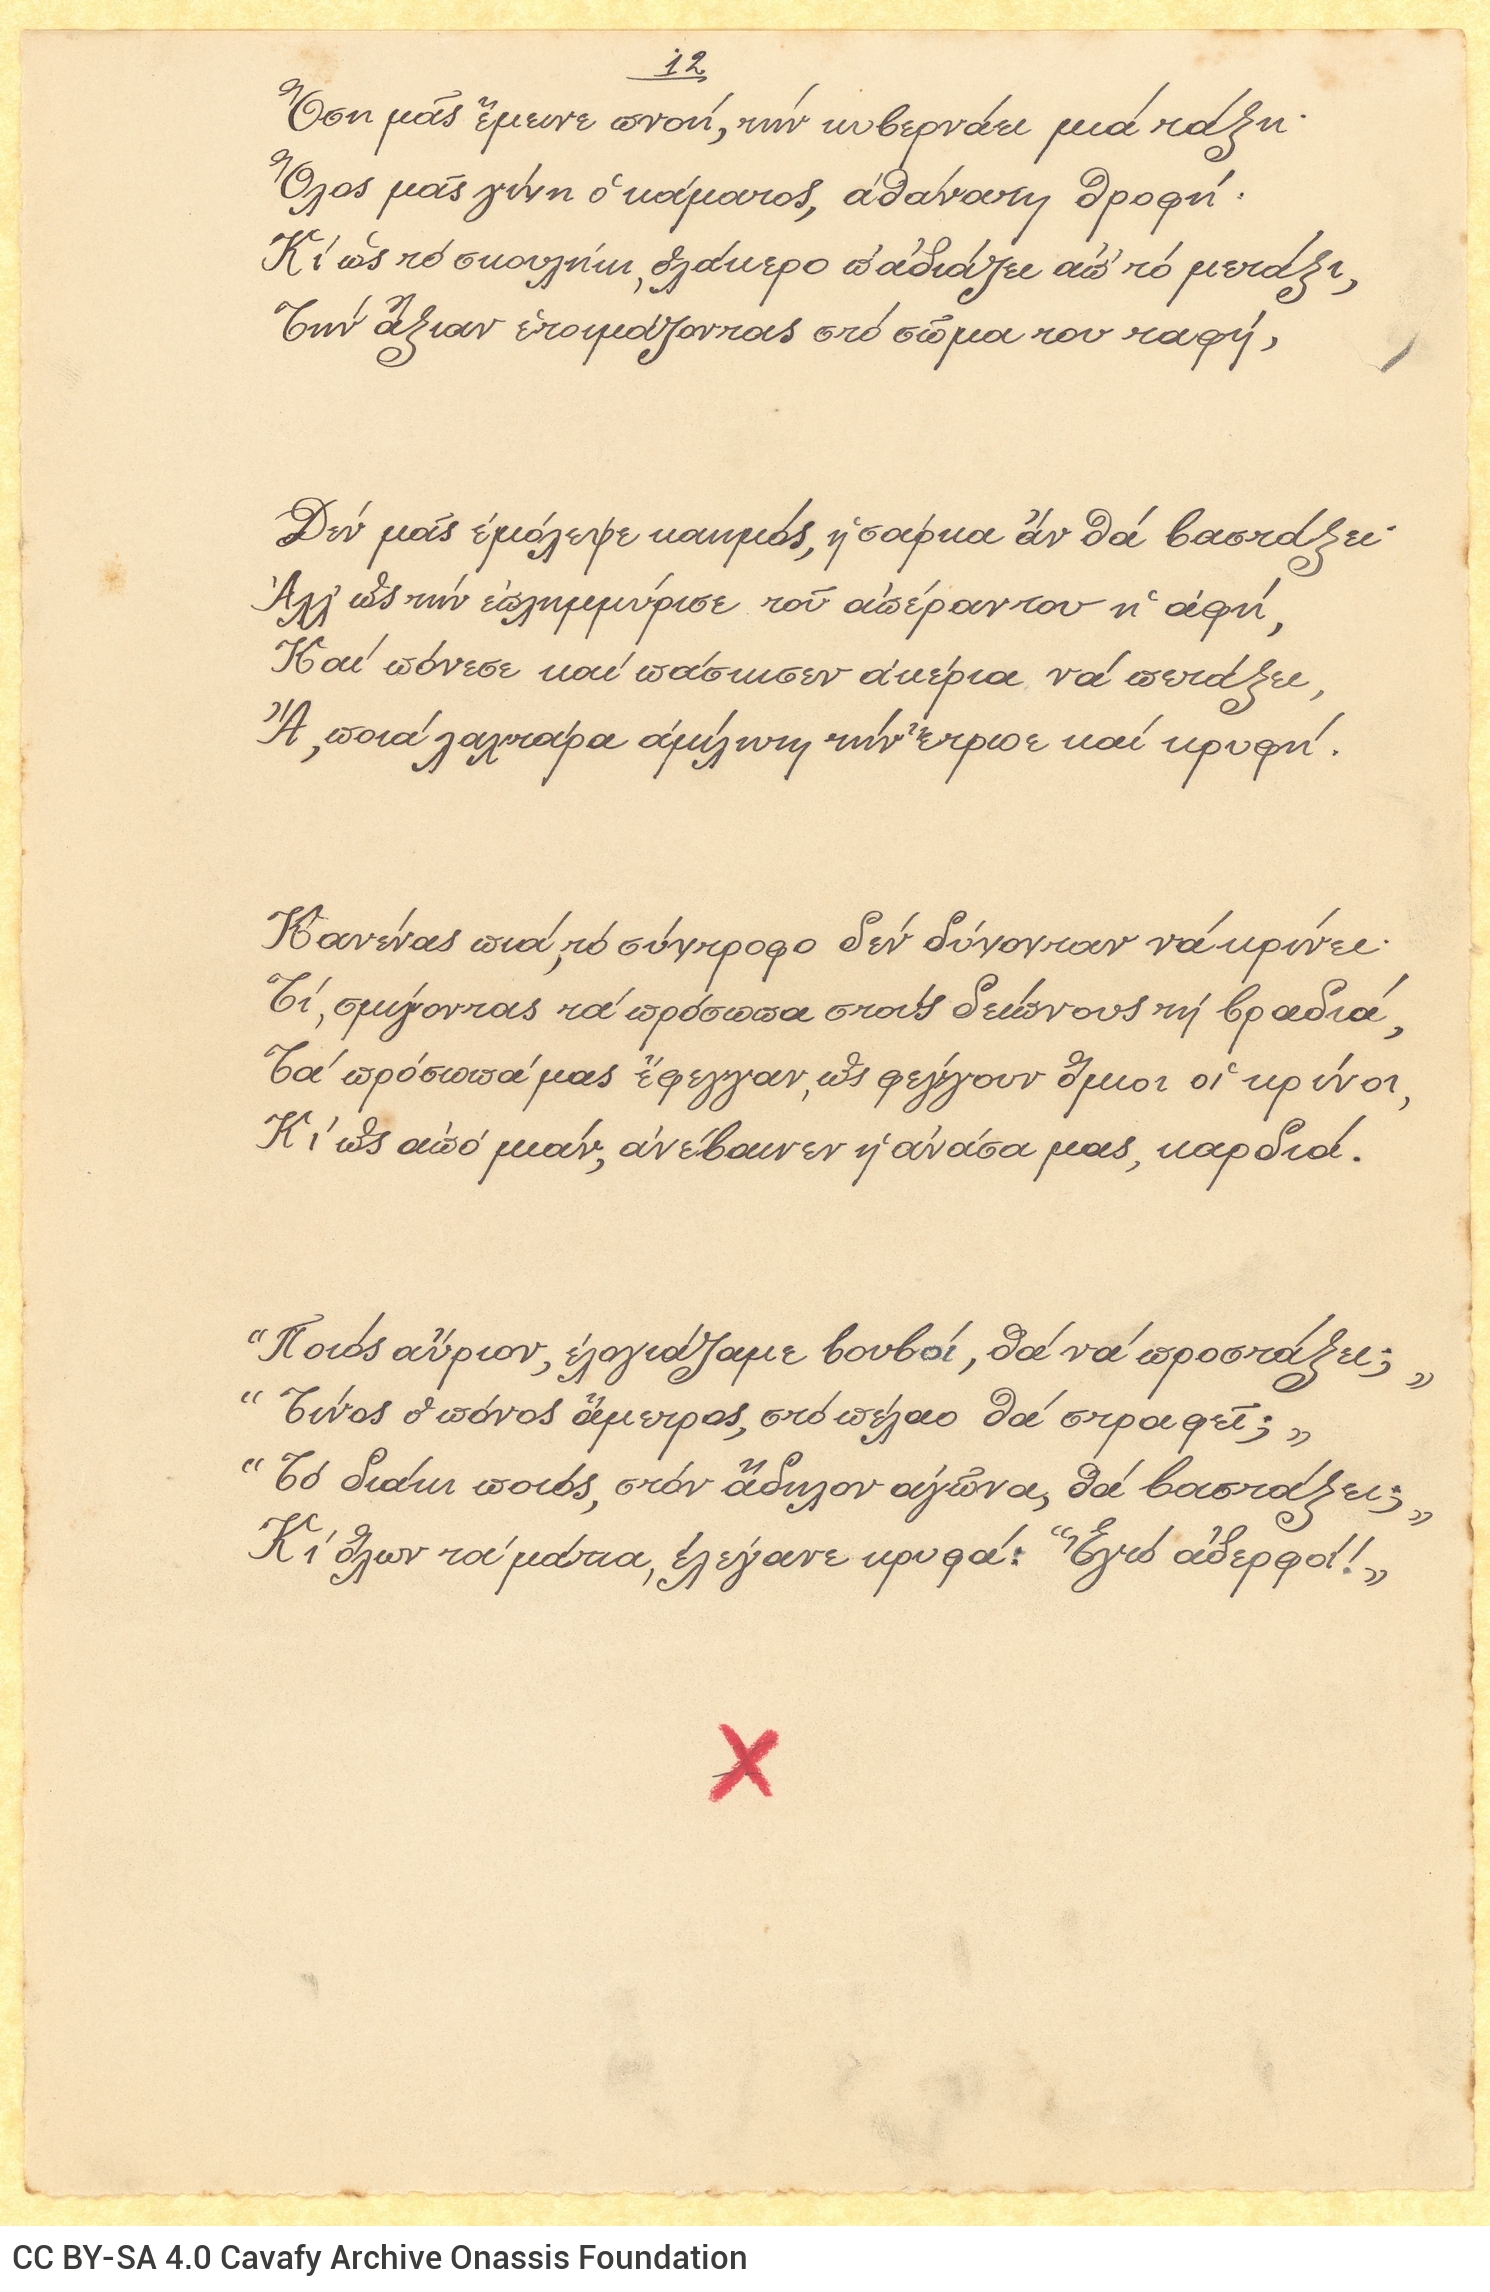 12
Ὅση μᾶς ἔμεινε πνοή, τήν κυβερνάει μιά τάξη·
Ὅλος μᾶς γίνη ὁ κάματος, ἀθάνατη θροφή·
Κί ὡς τό σκουλήκι, ὁλάκερο π' ἀδιάζει ἀπ' τό μετάξι,
Τήν ἄξιαν ἑτοιμάζοντας στό σῶμα του ταφή,
Δέν μᾶς ἐμόλεψε καημός, ἡ σάρκα ἄν θά βαστάξει·
Ἀλλ' ὡς τήν ἐπλημμύρισε τοῦ ἀπέραντου ἡ ἁφή,
Καί πόνεσε καί πάσκισεν ἀκέρια νά πετάξει,
Ἄ, ποιά λαχτάρα ἀμίλητη τήν ἔτρωε καί κρυφή.
Κανένας πιά, τό σύντροφο δέν δύνονταν νά κρίνει·
Τί, σμίγοντας τά πρόσωπα στούς δείπνους τή βραδιά,
Τά πρόσωπά μας ἔφεγγαν, ὡς φέγγουν ὅμοιοι οἱ κρίνοι,
Κί ὡς ἀπό μιάν, ἀνέβαινεν ἡ ἀνάσα μας, καρδιά.
“Ποιός αὔριον, ἐλογιάζαμε βουβοί, θά νά προστάξει; „
“Τίνος ὁ πόνος ἄμετρος, στό πέλαο θά στραφεῖ; „
“Τό διάκι ποιός, στόν ἄδηλον ἀγῶνα, θά βαστάξει; „
Κί ὅλων τά μάτια, ἐλέγανε κρυφά: “Ἐγώ ἀδερφοί! „
CC BY-SA 4.0 Cavafy Archive Onassis Foundation